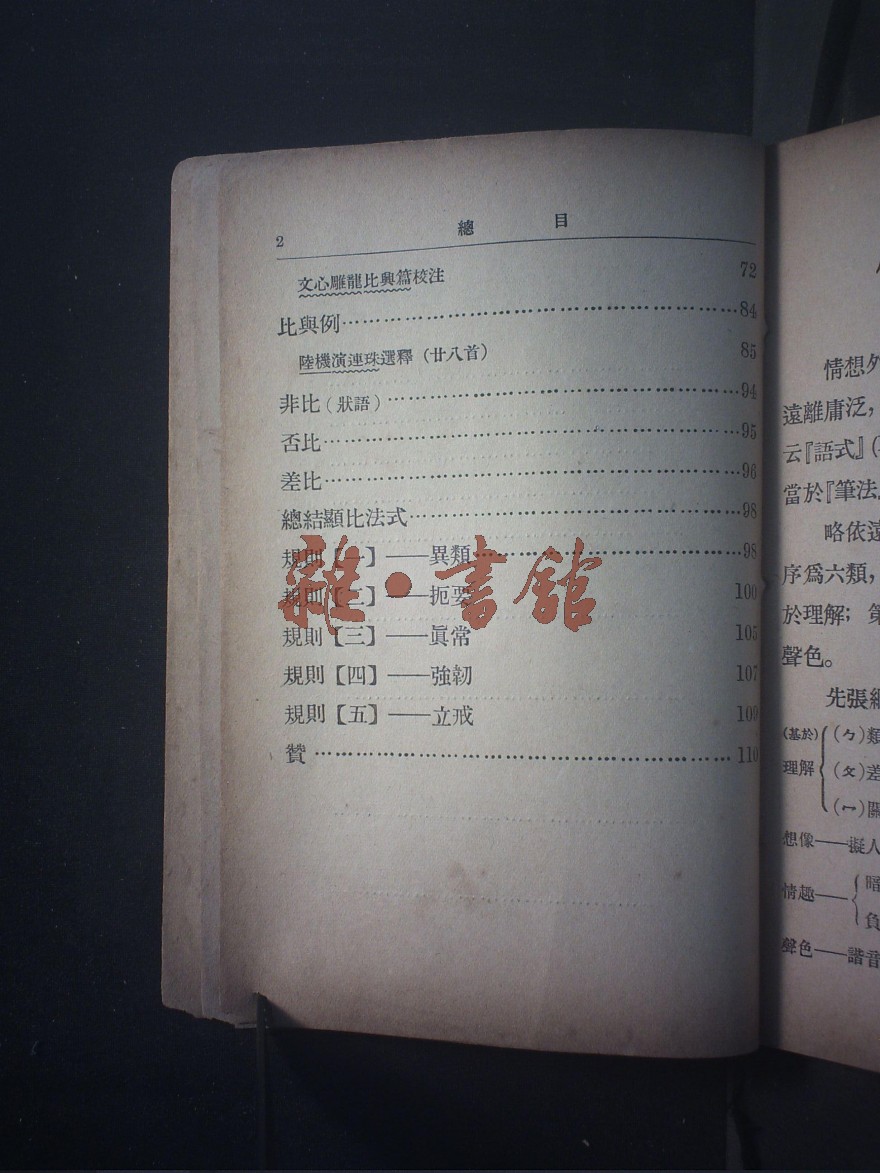 2 總目
文心雕龍比興篇校注 72
比與例………………………………………84
陸機演連珠選釋（廿八首） 85
非比（狀語）…………………………………94
否比…………………………………………95
差比…………………………………………96
總結顯比法式………………………………98
規則【一】——異類…………………………98
規則【二】——扼要 100
規則【三】——眞常 105
規則【四】——強韌 107
規則【五】——立戒 109
贊……………………………………………110
雜·書館
情想外
遠離庸泛，
云『語式』（
當於『筆法
略依遠
序爲六類，
於理解；第
聲色。
先張
（基於）（ㄅ）類
理解（ㄆ）差
（ㄇ）關
想像——擬人
情趣——暗
負
聲色——諧音